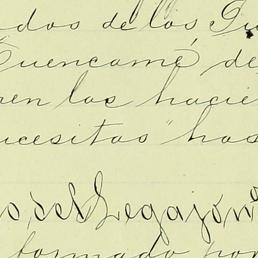 dos de los
Cuencamé de
en las hacie
ucesitas" has
s, del Legajo nº
formado por